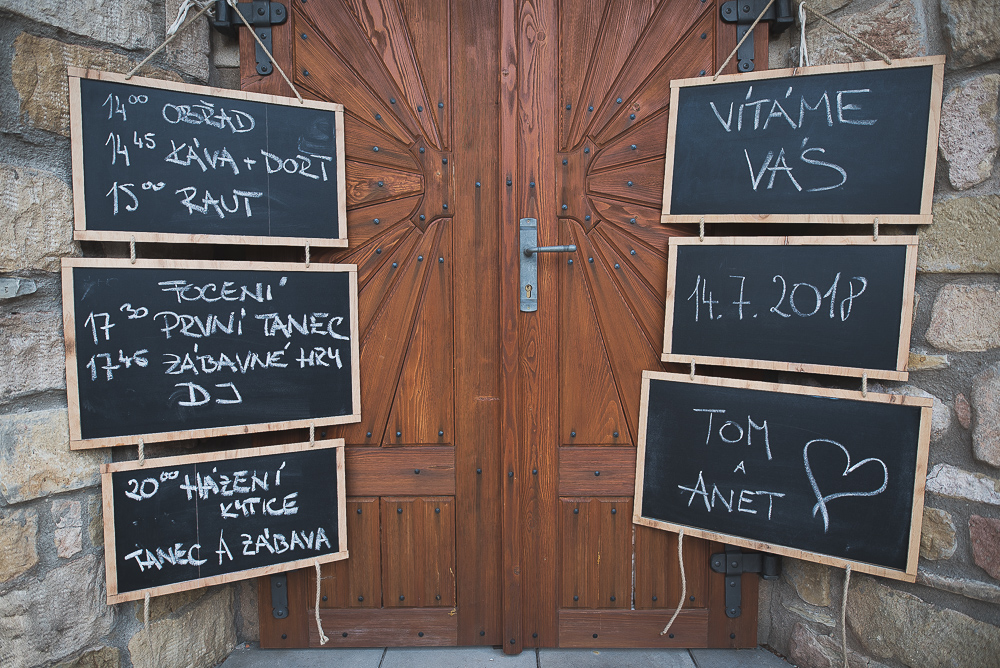 14⁰⁰ OBŘAD
14⁴⁵ KÁVA + DORT
15⁰⁰ RAUT
FOCENÍ
17³⁰ PRVNÍ TANEC
17⁴⁵ ZÁBAVNÉ HRY
DJ
20⁰⁰ HÁZENÍ
KYTICE
TANEC A ZÁBAVA
VÍTÁME
VÁS
14.7.2018
TOM
A
ANET